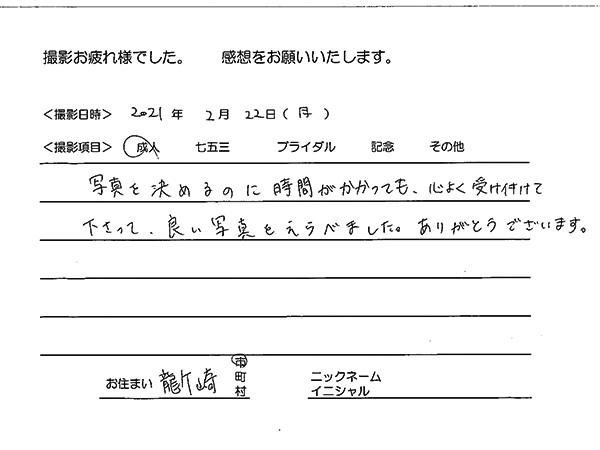 撮影お疲れ様でした。　感想をお願いいたします。
＜撮影日時＞ 2021年 2月 22日(月)
＜撮影項目＞ 成人　七五三　ブライダル　記念　その他
写真を決めるのに時間がかかっても、心よく受け付けて
下さって、良い写真をえらべました。ありがとうございます。
お住まい 龍ケ崎 市
町
村
ニックネーム
イニシャル